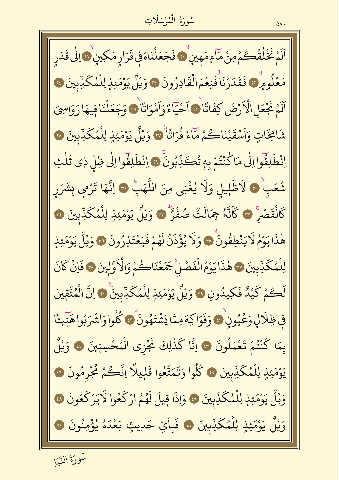 سُورَةُ الْمُرْسَلَاتِ
٥٨٠
اَلَمْ نَخْلُقْكُمْ مِنْ مَٓاءٍ مَهٖينٍ فَجَعَلْنَاهُ فٖى قَرَارٍ مَكٖينٍ اِلٰى قَدَرٍ
مَعْلُومٍ فَقَدَرْنَا فَنِعْمَ الْقَادِرُونَ وَيْلٌ يَوْمَئِذٍ لِلْمُكَذِّبٖينَ
اَلَمْ نَجْعَلِ الْاَرْضَ كِفَاتًا اَحْيَٓاءً وَاَمْوَاتًا وَجَعَلْنَا فٖيهَا رَوَاسِىَ
شَامِخَاتٍ وَاَسْقَيْنَاكُمْ مَٓاءً فُرَاتًا وَيْلٌ يَوْمَئِذٍ لِلْمُكَذِّبٖينَ
اِنْطَلِقُٓوا اِلٰى مَا كُنْتُمْ بِهٖ تُكَذِّبُونَ اِنْطَلِقُٓوا اِلٰى ظِلٍّ ذٖى ثَلٰثِ
شُعَبٍ لَا ظَلٖيلٍ وَلَا يُغْنٖى مِنَ اللَّهَبِ اِنَّهَا تَرْمٖى بِشَرَرٍ
كَالْقَصْرِ كَاَنَّهُ جِمَالَتٌ صُفْرٌ وَيْلٌ يَوْمَئِذٍ لِلْمُكَذِّبٖينَ
هٰذَا يَوْمُ لَا يَنْطِقُونَ وَلَا يُؤْذَنُ لَهُمْ فَيَعْتَذِرُونَ وَيْلٌ يَوْمَئِذٍ
لِلْمُكَذِّبٖينَ هٰذَا يَوْمُ الْفَصْلِ جَمَعْنَاكُمْ وَالْاَوَّلٖينَ فَاِنْ كَانَ
لَكُمْ كَيْدٌ فَكٖيدُونِ وَيْلٌ يَوْمَئِذٍ لِلْمُكَذِّبٖينَ اِنَّ الْمُتَّقٖينَ
فٖى ظِلَالٍ وَعُيُونٍ وَفَوَاكِهَ مِمَّا يَشْتَهُونَ كُلُوا وَاشْرَبُوا هَنٖٓيـًٔا
بِمَا كُنْتُمْ تَعْمَلُونَ اِنَّا كَذٰلِكَ نَجْزِى الْمُحْسِنٖينَ وَيْلٌ
يَوْمَئِذٍ لِلْمُكَذِّبٖينَ كُلُوا وَتَمَتَّعُوا قَلٖيلًا اِنَّكُمْ مُجْرِمُونَ
وَيْلٌ يَوْمَئِذٍ لِلْمُكَذِّبٖينَ وَاِذَا قٖيلَ لَهُمُ ارْكَعُوا لَا يَرْكَعُونَ
وَيْلٌ يَوْمَئِذٍ لِلْمُكَذِّبٖينَ فَبِاَىِّ حَدٖيثٍ بَعْدَهُ يُؤْمِنُونَ